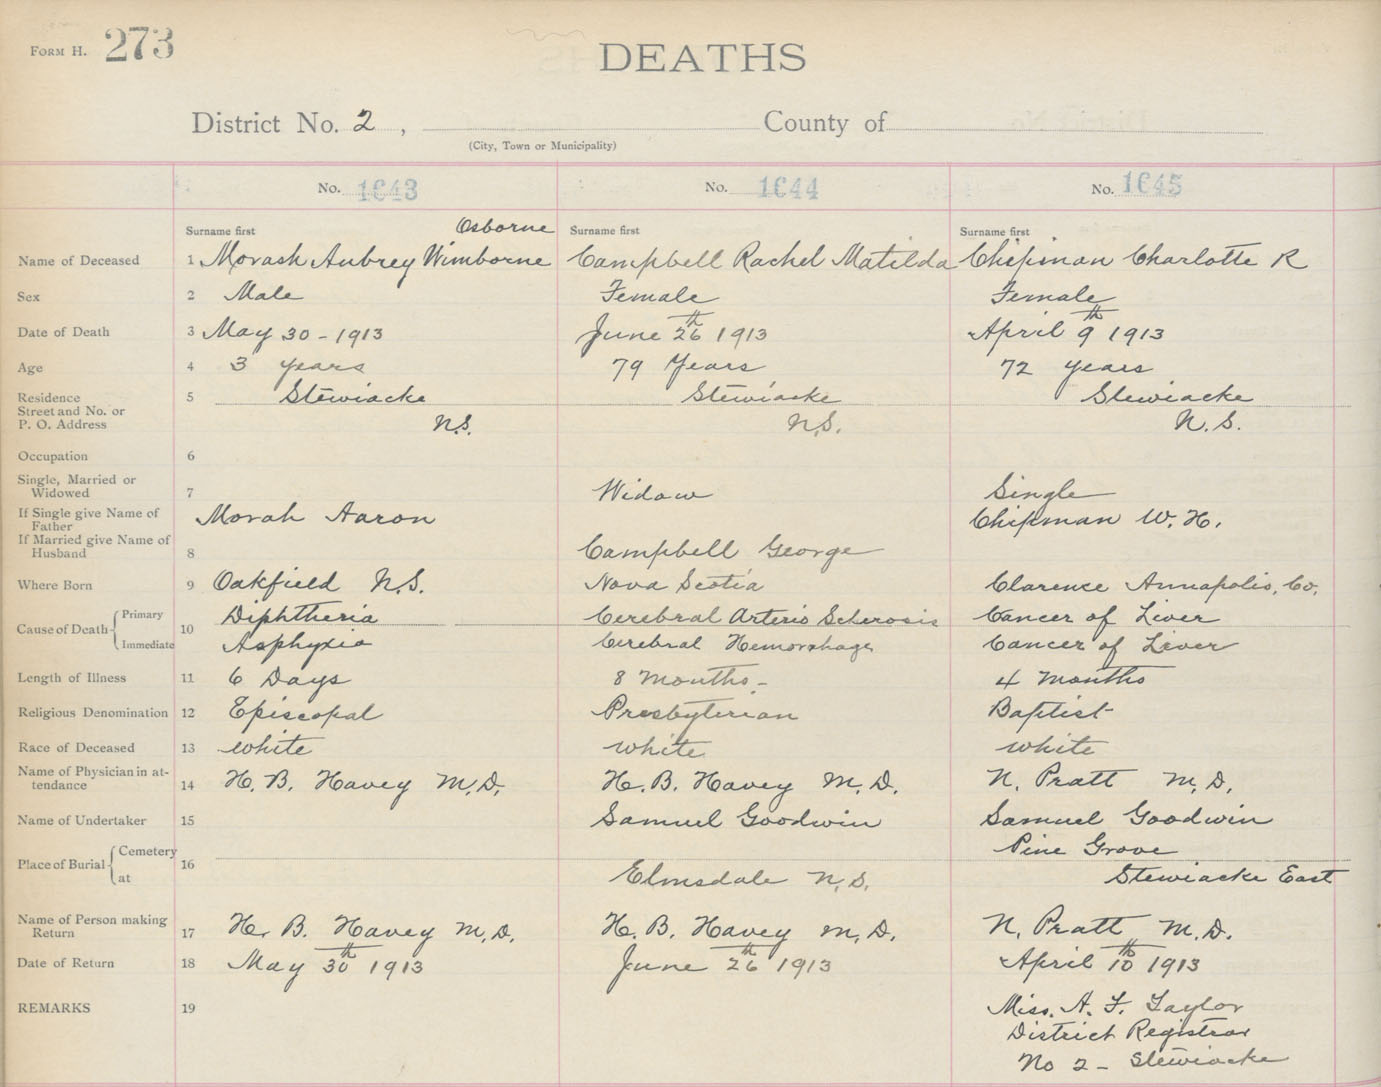 FORM H. 273
DEATHS
District No. 2 , County of
(City, Town or Municipality)
No. 1643 No. 1644 No. 1645
Surname first Osborne Surname first Surname first
Name of Deceased 1 Morash Aubrey Wimborne Campbell Rachel Matilda Chipman Charlotte R
Sex 2 Male Female Female
Date of Death 3 May 30 - 1913 June 26th 1913 April 9th 1913
Age 4 3 years 79 Years 72 years
Residence 5 Stewiacke Stewiacke Stewiacke
Street and No. or
P. O. Address N.S. N.S. N.S.
Occupation 6
Single, Married or
Widowed 7 Widow Single
If Single give Name of Morah Aaron Chipman W. H.
Father
If Married give Name of
Husband 8 Campbell George
Where Born 9 Oakfield N.S. Nova Scotia Clarence Annapolis, Co.
Cause of Death Primary 10 Diphtheria Cerebral Arterio Scherosis Cancer of Liver
Immediate Asphyxia Cerebral Hemorrhage Cancer of Liver
Length of Illness 11 6 Days 8 Months - 4 Months
Religious Denomination 12 Episcopal Presbyterian Baptist
Race of Deceased 13 white white white
Name of Physician in at-
tendance 14 H. B. Havey M.D. H. B. Havey M.D. N. Pratt M.D.
Name of Undertaker 15 Samuel Goodwin Samuel Goodwin
Place of Burial Cemetery 16 Pine Grove
at Elmsdale N.S. Stewiacke East
Name of Person making
Return 17 H. B. Havey M.D. H. B. Havey M.D. N. Pratt M.D.
Date of Return 18 May 30th 1913 June 26th 1913 April 10th 1913
REMARKS 19 Miss. A. F. Taylor
District Registrar
No 2 - Stewiacke